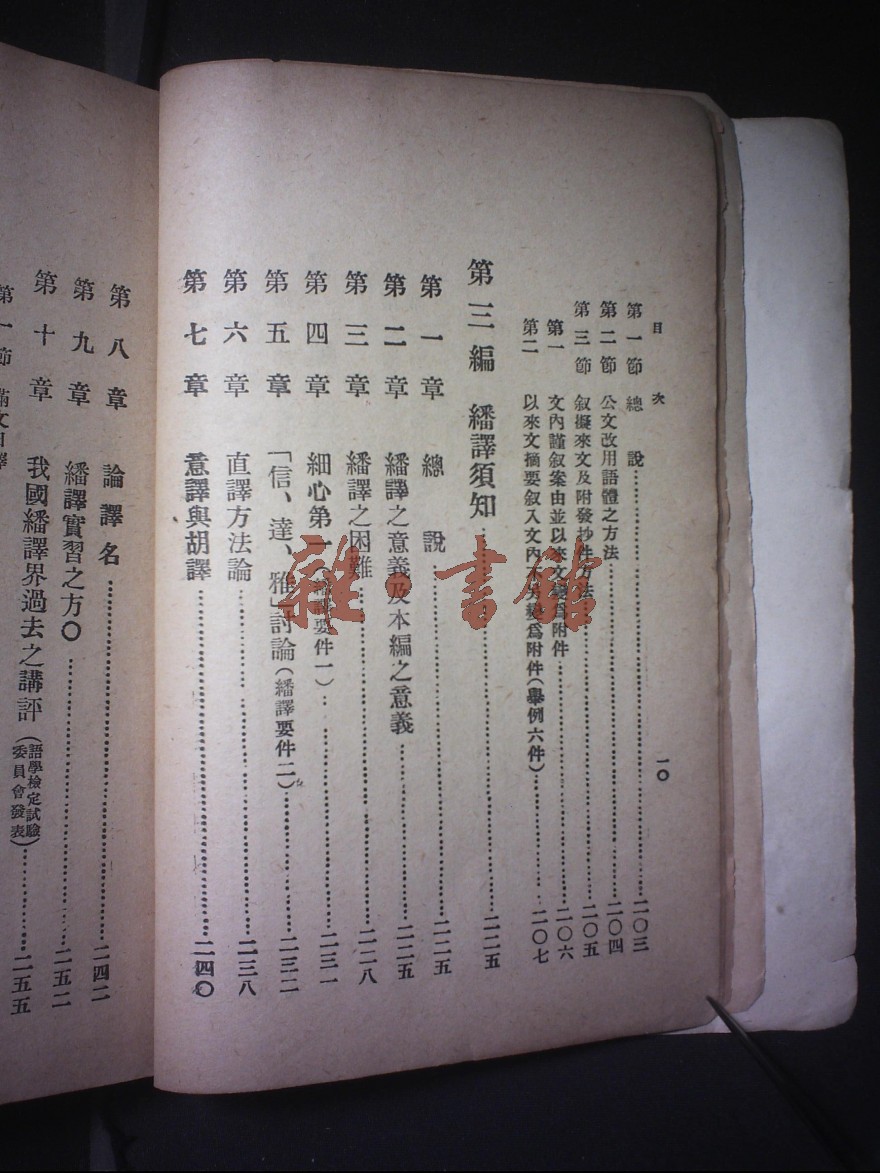 目次
一〇
第一節 總說……二〇三
第二節 公文改用語體之方法……二〇四
第三節 叙擬來文及附發抄件方法……二〇五
第一 文內謹叙案由並以來文變爲附件……二〇六
第二 以來文摘要叙入文內不另變爲附件(舉例六件)……二〇七
第三編 繙譯須知……二二五
第一章 總說……二二五
第二章 繙譯之意義及本編之意義……二二五
第三章 繙譯之困難……二二八
第四章 細心第一(要件一)……二三一
第五章 「信、達、雅」討論(繙譯要件二)……二三二
第六章 直譯方法論……二三八
第七章 意譯與胡譯……二四〇
第八章 論譯名……二四二
第九章 繙譯實習之方〇……二五二
第十章 我國繙譯界過去之講評(語學檢定試驗委員會發表)……二五五
第一節
雜·書館